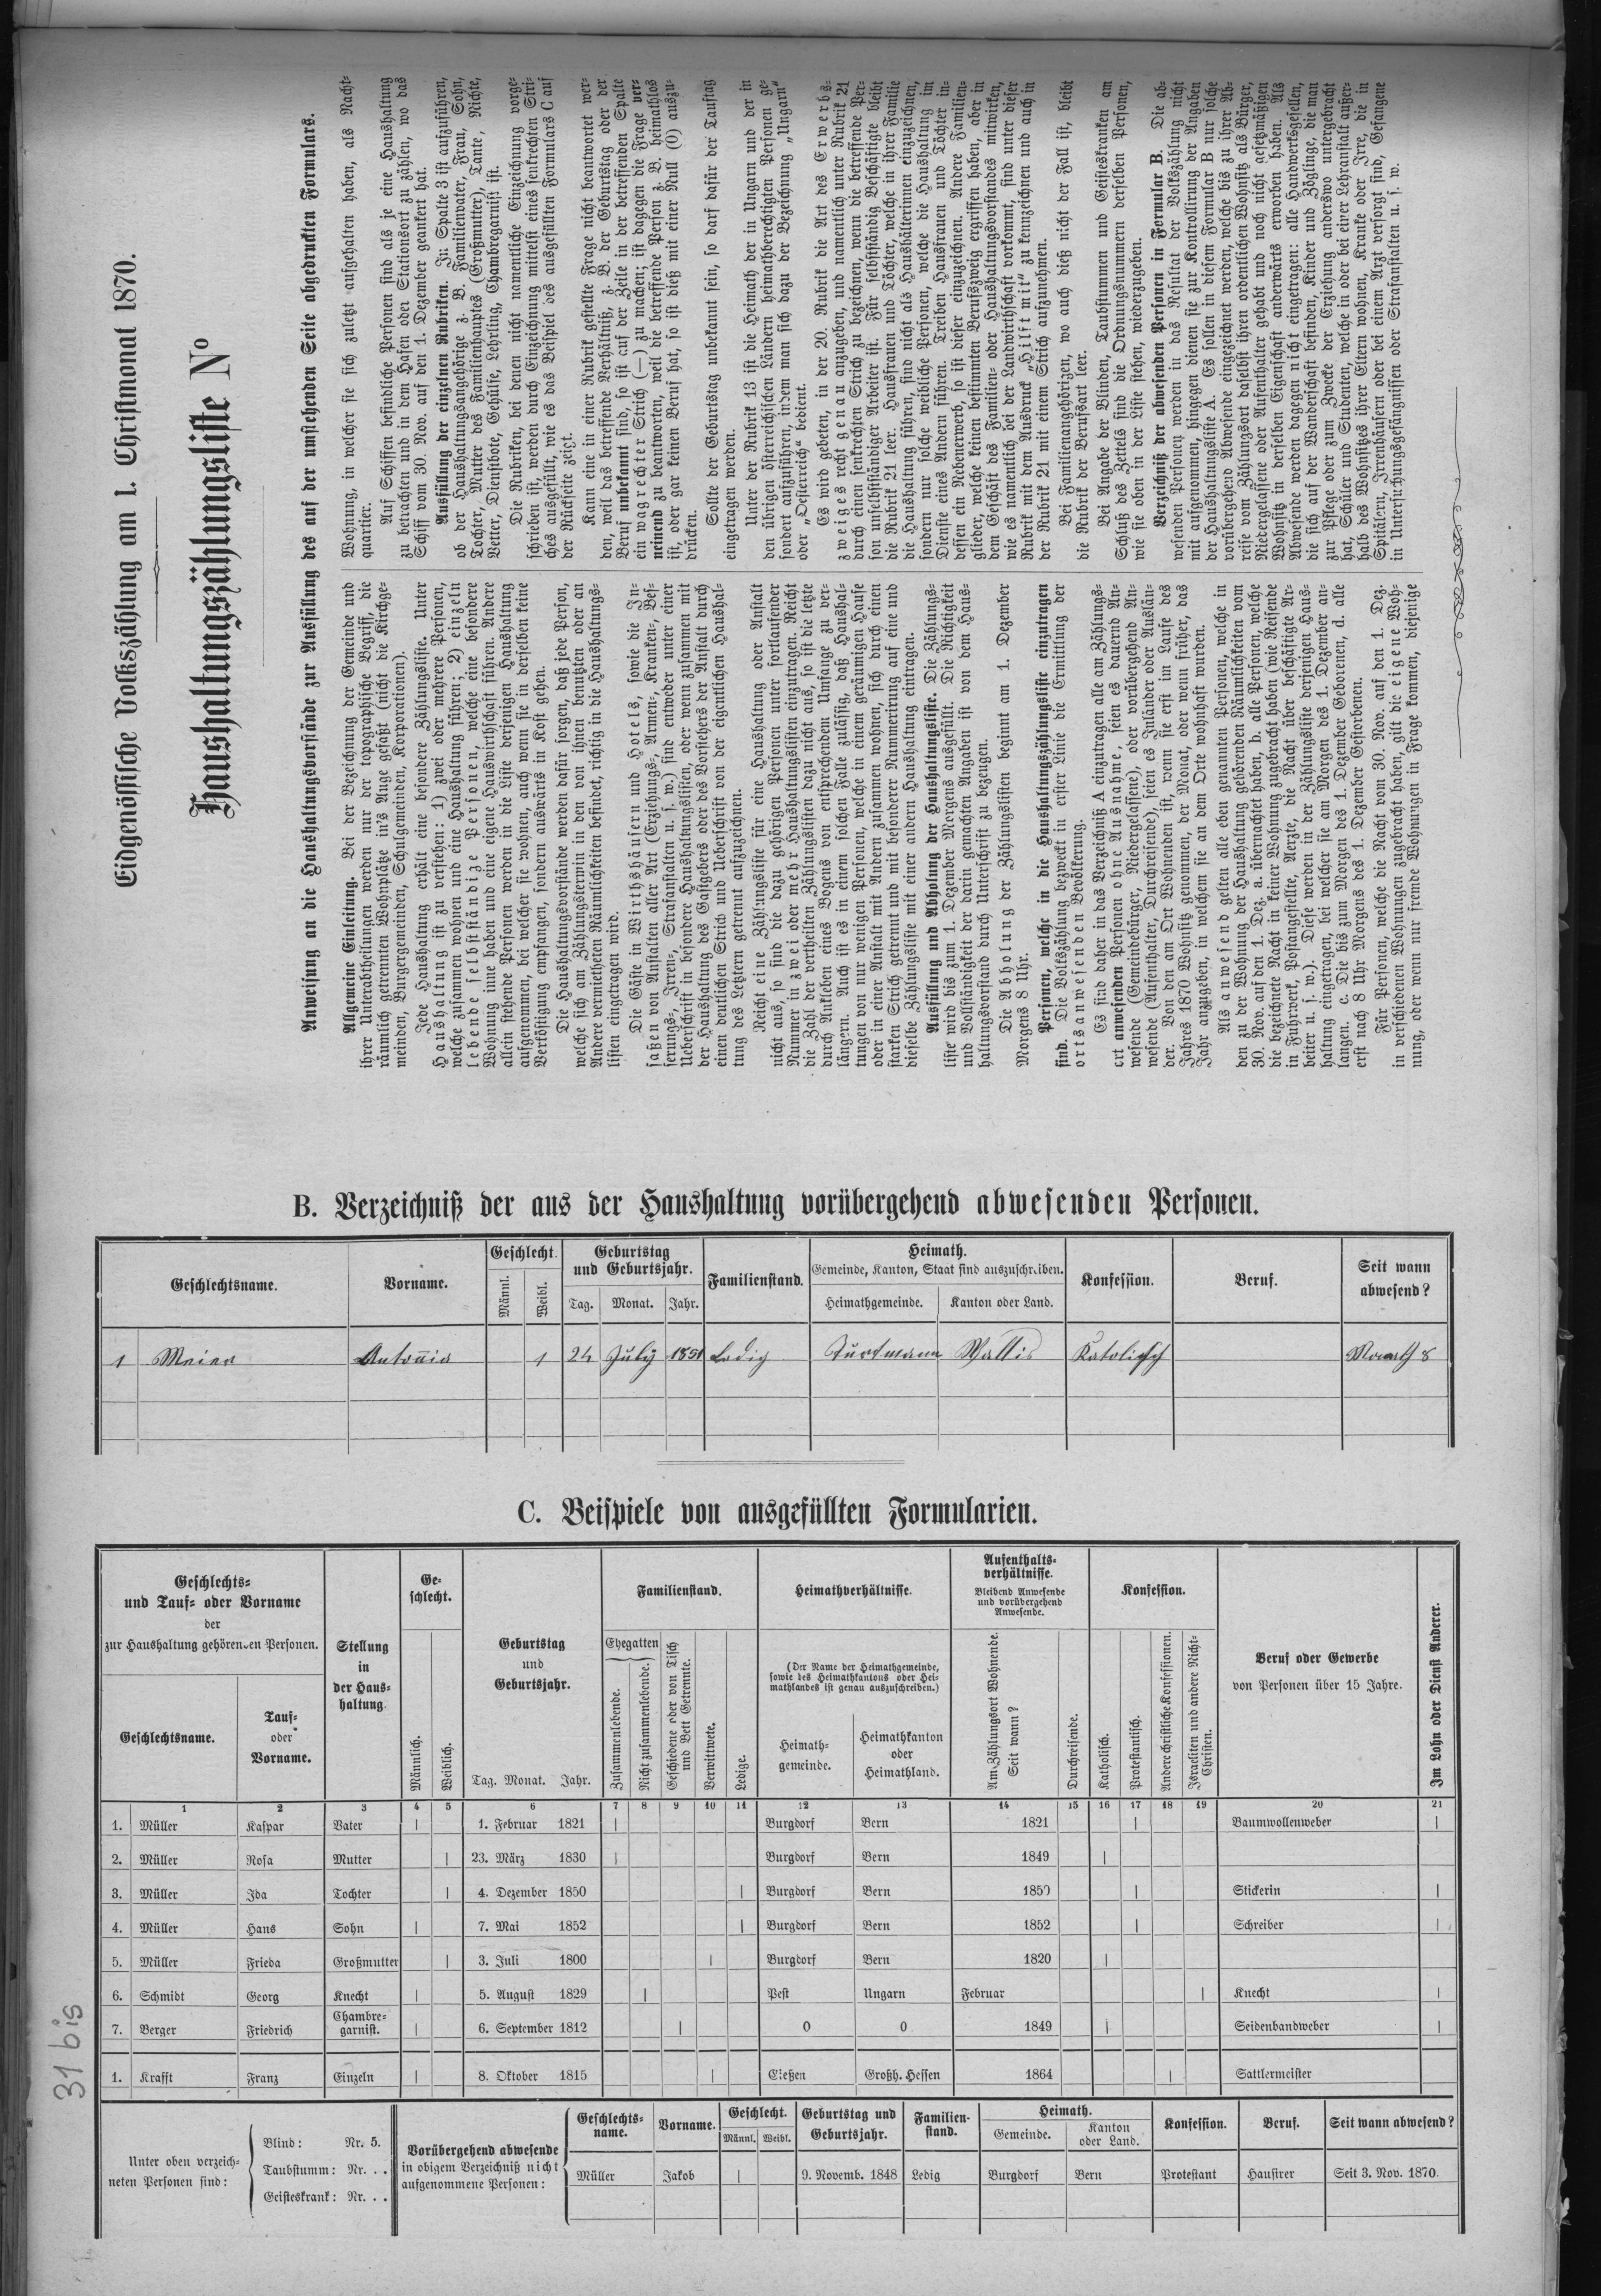 Eidgenössische Volkszählung am 1. Christmonat 1870.
Haushaltungszählungsliste No
Anweisung an die Haushaltungsvorstände zur Ausfüllung des auf der umstehenden Seite abgedruckten Formulars.
Allgemeine Einleitung. Bei der Bezeichnung der Gemeinde und
ihrer Unterabtheilungen werden nur der topographische Begriff, die
räumlich getrennten Wohnplätze in's Auge gefaßt (nicht die Kirchge-
meinden, Burgergemeinden, Schulgemeinden, Korporationen).
Jede Haushaltung erhält eine besondere Zählungsliste. Unter
Haushaltung ist zu verstehen: 1) zwei oder mehrere Personen,
welche zusammen wohnen und eine Haushaltung führen; 2) einzeln
lebende selbstständige Personen, welche eine besondere
Wohnung inne haben und eine eigene Hauswirthschaft führen. Andere
allein stehende Personen werden in die Liste derjenigen Haushaltung
aufgenommen, bei welcher sie wohnen, auch wenn sie in derselben keine
Verköstigung empfangen, sondern auswärts in Kost gehen.
Die Haushaltungsvorstände werden dafür sorgen, daß jede Person,
welche sich am Zählungstermin in den von ihnen benutzten oder an
Andere vermietheten Räumlichkeiten befindet, richtig in die Haushaltungs-
listen eingetragen wird.
Die Gäste in Wirthshäusern und Hotels, sowie die In-
saßen von Anstalten aller Art (Erziehungs-, Armen-, Kranken-, Bes-
serungs-, Irren-, Strafanstalten u. s. w.) sind entweder unter einer
Ueberschrift in besondere Haushaltungslisten, oder wenn zusammen mit
der Haushaltung des Gastgebers oder des Vorstehers der Anstalt durch
einen deutlichen Strich und Ueberschrift von der eigentlichen Haushal-
tung des Letztern getrennt aufzuzeichnen.
Reicht eine Zählungsliste für eine Haushaltung oder Anstalt
nicht aus, so sind die dazu gehörigen Personen unter fortlaufender
Nummer in zwei oder mehr Haushaltungslisten einzutragen. Reicht
die Zahl der vertheilten Zählungslisten dazu nicht aus, so ist die letzte
durch Ankleben eines Bogens von entsprechendem Umfange zu ver-
längern. Auch ist es in einem solchen Falle zulässig, daß Haushal-
tungen von nur wenigen Personen, welche in einem geräumigen Hause
oder in einer Anstalt mit Andern zusammen wohnen, sich durch einen
starken Strich getrennt und mit besonderer Nummerirung auf eine und
dieselbe Zählungsliste mit einer andern Haushaltung eintragen.
Ausfüllung und Abholung der Haushaltungsliste. Die Zählungs-
liste wird bis zum 1. Dezember Morgens ausgefüllt. Die Richtigkeit
und Vollständigkeit der darin gemachten Angaben ist von dem Haus-
haltungsvorstand durch Unterschrift zu bezeugen.
Die Abholung der Zählungslisten beginnt am 1. Dezember
Morgens 8 Uhr.
Personen, welche in die Haushaltungszählungsliste einzutragen
sind. Die Volkszählung bezweckt in erster Linie die Ermittlung der
ortsanwesenden Bevölkerung.
Es sind daher in das Verzeichniß A einzutragen alle am Zählungs-
ort anwesenden Personen ohne Ausnahme, seien es dauernd An-
wesende (Gemeindebürger, Niedergelassene), oder vorübergehend An-
wesende (Aufenthalter, Durchreisende), seien es Inländer oder Auslän-
der. Von den am Ort Wohnenden ist, wenn sie erst im Laufe des
Jahres 1870 Wohnsitz genommen, der Monat, oder wenn früher, das
Jahr anzugeben, in welchem sie an dem Orte wohnhaft wurden.
Als anwesend gelten alle eben genannten Personen, welche in
den zu der Wohnung der Haushaltung gehörenden Räumlichkeiten vom
30. Nov. auf den 1. Dez. a. übernachtet haben, b. alle Personen, welche
die bezeichnete Nacht in keiner Wohnung zugebracht haben (wie Reisende
in Fuhrwerk, Postangestellte, Aerzte, die Nacht über beschäftigte Ar-
beiter u. s. w.). Diese werden in der Zählungsliste derjenigen Haus-
haltung eingetragen, bei welcher sie am Morgen des 1. Dezember an-
langen. c. Die bis zum Morgen des 1. Dezember Geborenen, d. alle
erst nach 8 Uhr Morgens des 1. Dezember Gestorbenen.
Für Personen, welche die Nacht vom 30. Nov. auf den 1. Dez.
in verschiedenen Wohnungen zugebracht haben, gilt die eigene Woh-
nung, oder wenn nur fremde Wohnungen in Frage kommen, diejenige
Wohnung, in welcher sie sich zuletzt aufgehalten haben, als Nacht-
quartier.
Auf Schiffen befindliche Personen sind als je eine Haushaltung
zu betrachten und in dem Hafen oder Stationsort zu zählen, wo das
Schiff vom 30. Nov. auf den 1. Dezember geankert hat.
Ausfüllung der einzelnen Rubriken. In Spalte 3 ist aufzuführen,
ob der Haushaltungsangehörige z. B. Familienvater, Frau, Sohn,
Tochter, Mutter des Familienhauptes (Großmutter), Tante, Nichte,
Vetter, Dienstbote, Gehülfe, Lehrling, Chambregarnist ist.
Die Rubriken, bei denen nicht namentliche Einzeichnung vorge-
schrieben ist, werden durch Einzeichnung mittelst eines senkrechten Stri-
ches ausgefüllt, wie es das Beispiel des ausgefüllten Formulars C auf
der Rückseite zeigt.
Kann eine in einer Rubrik gestellte Frage nicht beantwortet wer-
den, weil das betreffende Verhältniß, z. B. der Geburtstag oder der
Beruf unbekannt sind, so ist auf der Zeile in der betreffenden Spalte
ein wagrechter Strich (—) zu machen; ist dagegen die Frage ver-
neinend zu beantworten, weil die betreffende Person z. B. heimathlos
ist, oder gar keinen Beruf hat, so ist dieß mit einer Null (0) auszu-
drücken.
Sollte der Geburtstag unbekannt sein, so darf dafür der Tauftag
eingetragen werden.
Unter der Rubrik 13 ist die Heimath der in Ungarn und der in
den übrigen österreichischen Ländern heimathberechtigten Personen ge-
sondert aufzuführen, indem man sich dazu der Bezeichnung „Ungarn“
oder „Oesterreich“ bedient.
Es wird gebeten, in der 20. Rubrik die Art des Erwerbs-
zweiges recht genau anzugeben, und namentlich unter Rubrik 21
durch einen senkrechten Strich zu bezeichnen, wenn die betreffende Per-
son unselbstständiger Arbeiter ist. Für selbstständig Beschäftigte bleibt
die Rubrik 21 leer. Hausfrauen und Töchter, welche in ihrer Familie
die Haushaltung führen, sind nicht als Haushälterinnen einzuzeichnen,
sondern nur solche weibliche Personen, welche die Haushaltung im
Dienste eines Andern führen. Treiben Hausfrauen und Töchter in-
dessen ein Nebenerwerb, so ist dieser einzuzeichnen. Andere Familien-
glieder, welche keinen bestimmten Berufszweig ergriffen haben, aber in
dem Geschäft des Familien- oder Haushaltungsvorstandes mitwirken,
wie es namentlich bei der Landwirthschaft vorkommt, sind unter dieser
Rubrik mit dem Ausdruck „Hilft mit“ zu kennzeichnen und auch in
der Rubrik 21 mit einem Strich aufzunehmen.
Bei Familienangehörigen, wo auch dieß nicht der Fall ist, bleibt
die Rubrik der Berufsart leer.
Bei Angabe der Blinden, Taubstummen und Geisteskranken am
Schluß des Zettels sind die Ordnungsnummern derselben Personen,
wie sie oben in der Liste stehen, wiederzugeben.
Verzeichniß der abwesenden Personen in Formular B. Die ab-
wesenden Personen werden in das Resultat der Volkszählung nicht
mit aufgenommen, hingegen dienen sie zur Kontrollirung der Angaben
der Haushaltungsliste A. Es sollen in diesem Formular B nur solche
vorübergehend Abwesende eingezeichnet werden, welche bis zu ihrer Ab-
reise vom Zählungsort daselbst ihren ordentlichen Wohnsitz als Bürger,
Niedergelassene oder Aufenthalter gehabt und noch nicht gesetzmäßigen
Wohnsitz in derselben Eigenschaft anderwärts erworben haben. Als
Abwesende werden dagegen nicht eingetragen: alle Handwerksgesellen,
die sich auf der Wanderschaft befinden, Kinder und Zöglinge, die man
zur Pflege oder zum Zwecke der Erziehung anderswo untergebracht
hat, Schüler und Studenten, welche in oder bei einer Lehranstalt außer-
halb des Wohnsitzes ihrer Eltern wohnen, Kranke oder Irre, die in
Spitälern, Irrenhäusern oder bei einem Arzt versorgt sind, Gefangene
in Untersuchungsgefängnissen oder Strafanstalten u. s. w.
B. Verzeichniß der aus der Haushaltung vorübergehend abwesenden Personen.
Geschlechtsname. Vorname. Geschlecht. Männl. Weibl. Geburtstag und Geburtsjahr. Tag. Monat. Jahr. Familienstand. Heimath. Gemeinde, Kanton, Staat sind auszuschreiben. Heimathgemeinde. Kanton oder Land. Konfession. Beruf. Seit wann abwesend?
1 Meier Antonia 1 24 July 1851 Ledig Turtmann Wallis Katolisch Monath 8
C. Beispiele von ausgefüllten Formularien.
Geschlechts- und Tauf- oder Vorname der zur Haushaltung gehörenden Personen.
Geschlechtsname. Tauf- oder Vorname.
Stellung in der Haus- haltung.
Ge- schlecht. Männlich. Weiblich.
Geburtstag und Geburtsjahr. Tag. Monat. Jahr.
Familienstand. Ehegatten Zusammenlebende. Nicht zusammenlebende. Geschiedene oder von Tisch und Bett Getrennte. Verwittwete. Ledige.
Heimathverhältnisse. (Der Name der Heimathgemeinde, sowie des Heimathkantons oder Hei- mathlandes ist genau auszuschreiben.)
Heimath- gemeinde. Heimathkanton oder Heimathland.
Aufenthalts- verhältnisse. Bleibend Anwesende und vorübergehend Anwesende.
Am Zählungsort Wohnende. Seit wann? Durchreisende.
Konfession. Katholisch. Protestantisch. Andere christliche Konfessionen. Israeliten und andere Nicht- Christen.
Beruf oder Gewerbe von Personen über 15 Jahre.
Im Lohn oder Dienst Anderer.
1 2 3 4 5 6 7 8 9 10 11 12 13 14 15 16 17 18 19 20 21
1. Müller Kaspar Vater | 1. Februar 1821 | Burgdorf Bern 1821 | Baumwollenweber |
2. Müller Rosa Mutter | 23. März 1830 | Burgdorf Bern 1849 |
3. Müller Ida Tochter | 4. Dezember 1850 | Burgdorf Bern 1850 | Stickerin |
4. Müller Hans Sohn | 7. Mai 1852 | Burgdorf Bern 1852 | Schreiber |
5. Müller Frieda Großmutter | 3. Juli 1800 | Burgdorf Bern 1820 |
6. Schmidt Georg Knecht | 5. August 1829 | Pest Ungarn Februar | Knecht |
7. Berger Friedrich Chambre- garnist. | 6. September 1812 | 0 0 1849 | Seidenbandweber |
1. Krafft Franz Einzeln | 8. Oktober 1815 | Gießen Großh. Hessen 1864 | Sattlermeister
Unter oben verzeich- neten Personen sind:
Blind: Nr. 5.
Taubstumm: Nr. . .
Geisteskrank: Nr. . .
Vorübergehend abwesende in obigem Verzeichniß nicht aufgenommene Personen:
Geschlechts- name. Vorname. Geschlecht. Männl. Weibl. Geburtstag und Geburtsjahr. Familien- stand. Heimath. Gemeinde. Kanton oder Land. Konfession. Beruf. Seit wann abwesend?
Müller Jakob | 9. Novemb. 1848 Ledig Burgdorf Bern Protestant Hausirer Seit 3. Nov. 1870.
31 bis